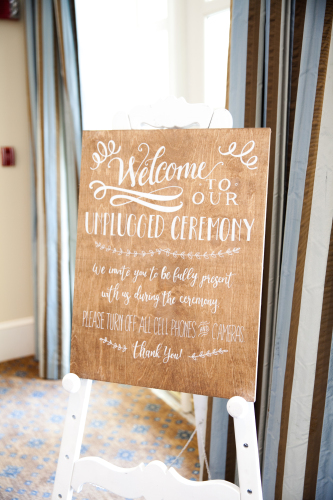 Welcome TO
OUR
UNPLUGGED CEREMONY
We invite you to be fully present
with us during the ceremony
PLEASE TURN OFF ALL CELL PHONES and CAMERAS
Thank You!